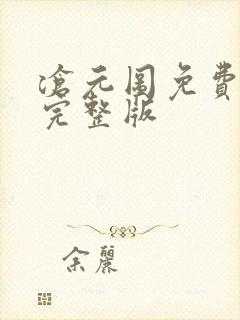 滄元圖免費
完整版
余麗